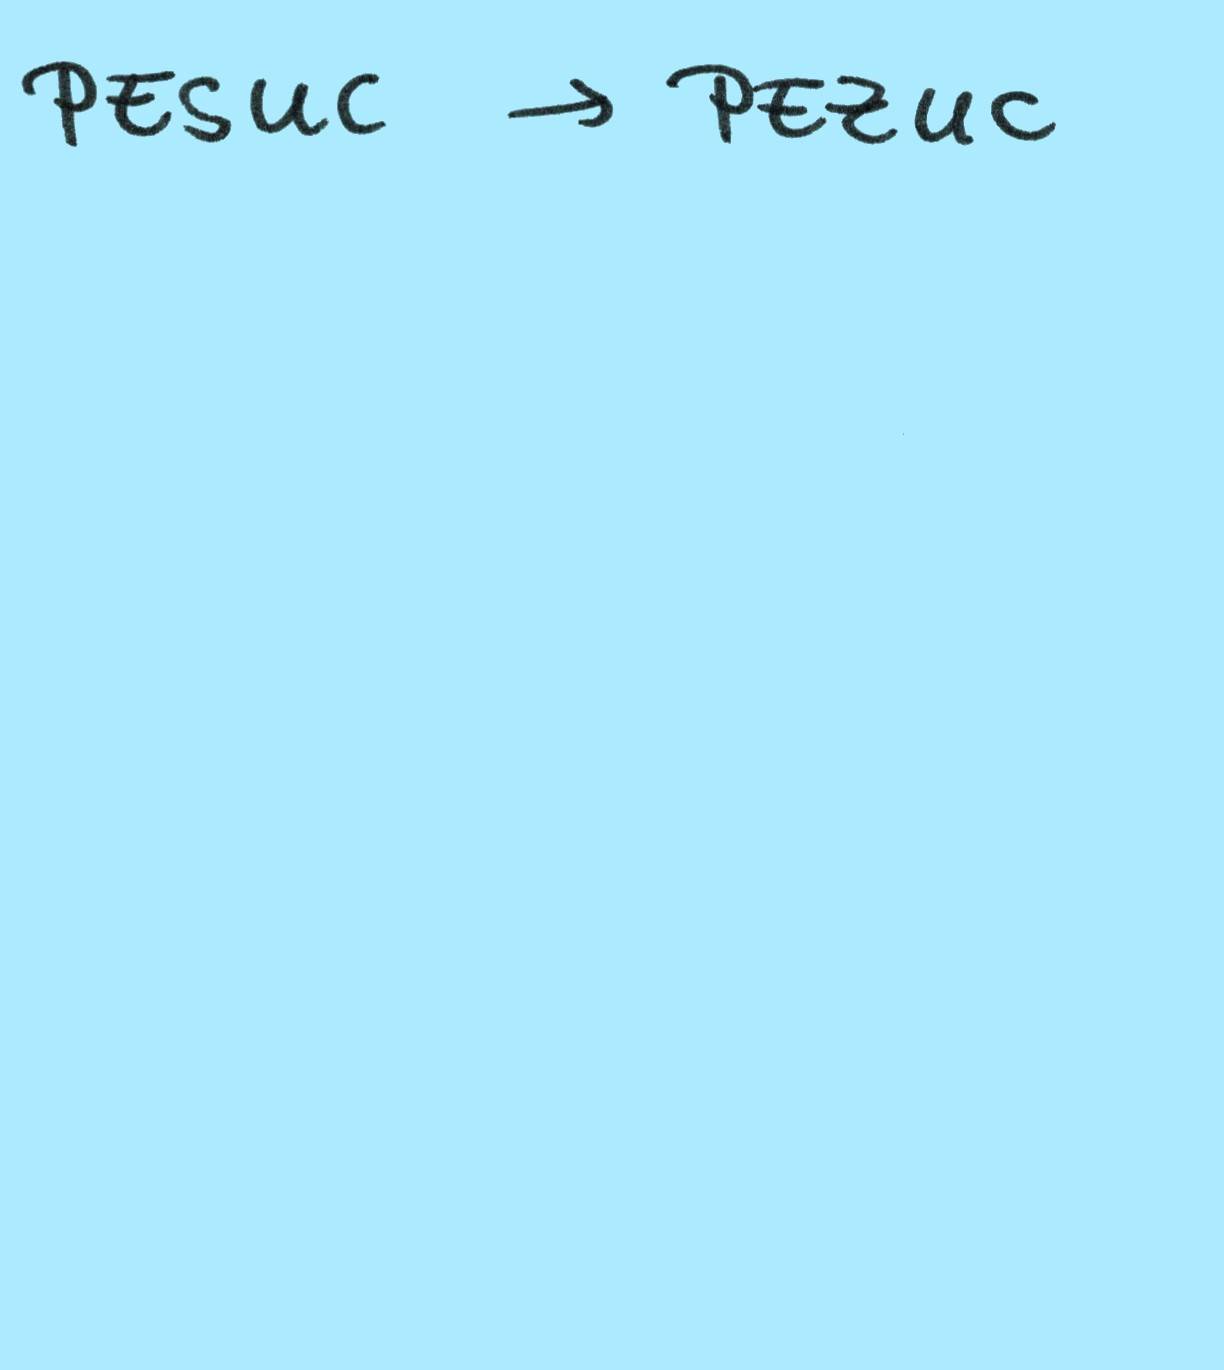 PESUC → PEZUC